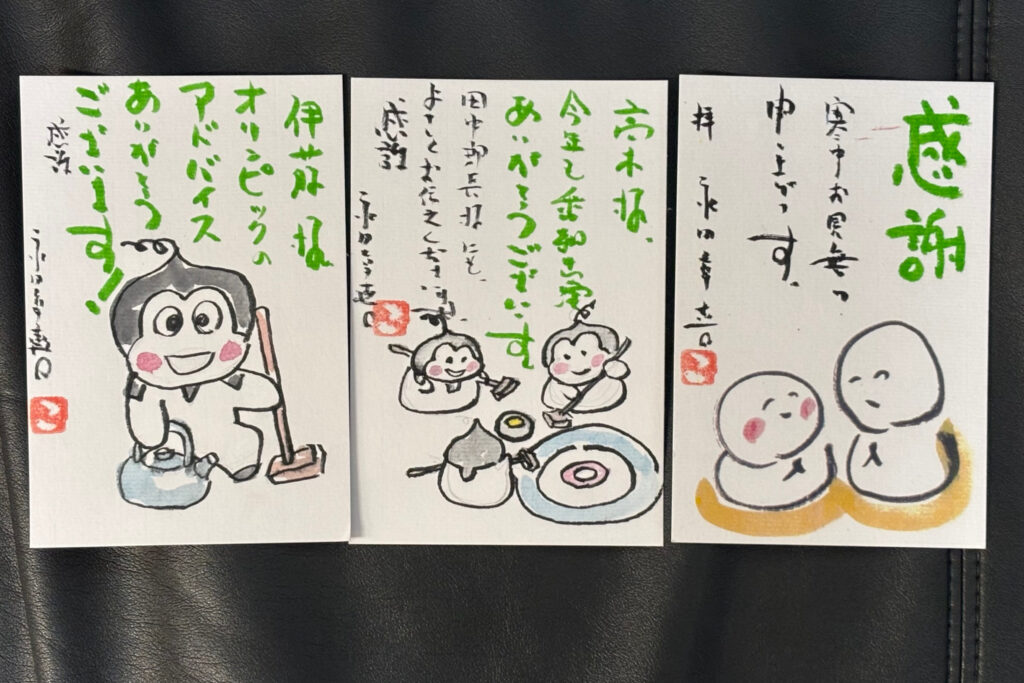 伊藤様
オリンピックの
アドバイス
ありがとう
ございます!
感謝
永田
高木様、
今年も
ありがとうございます
田中部長様にも、
よろしくお伝えください。
感謝
永田
感謝
寒中お見舞い
申し上げます。
拝 永田幸